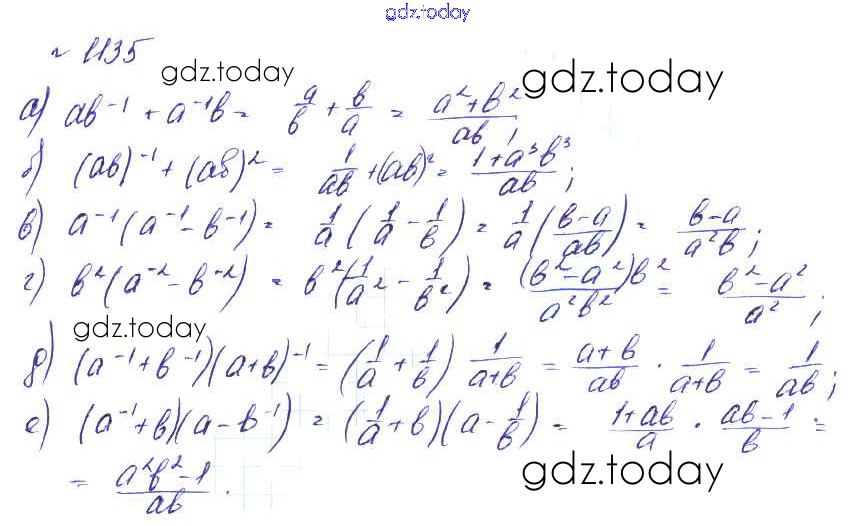 gdz.today
№ 1135
gdz.today
gdz.today
а) ab⁻¹ + a⁻¹b = a/b + b/a = (a² + b²)/ab;
б) (ab)⁻¹ + (ab)² = 1/ab + (ab)² = (1 + a³b³)/ab;
в) a⁻¹(a⁻¹ - b⁻¹) = 1/a (1/a - 1/b) = 1/a ((b - a)/ab) = (b - a)/a²b;
г) b²(a⁻² - b⁻²) = b²(1/a² - 1/b²) = (b² - a²)b²/a²b² = (b² - a²)/a²;
gdz.today
д) (a⁻¹ + b⁻¹)(a + b)⁻¹ = (1/a + 1/b) 1/(a + b) = (a + b)/ab · 1/(a + b) = 1/ab;
е) (a⁻¹ + b)(a - b⁻¹) = (1/a + b)(a - 1/b) = (1 + ab)/a · (ab - 1)/b =
= (a²b² - 1)/ab.
gdz.today